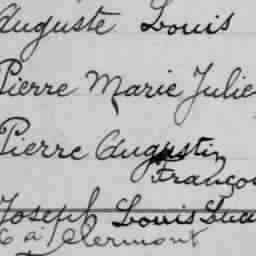 Auguste Louis
Pierre Marie Julie
Pierre Augustin
François
Joseph Louis
à Clermont